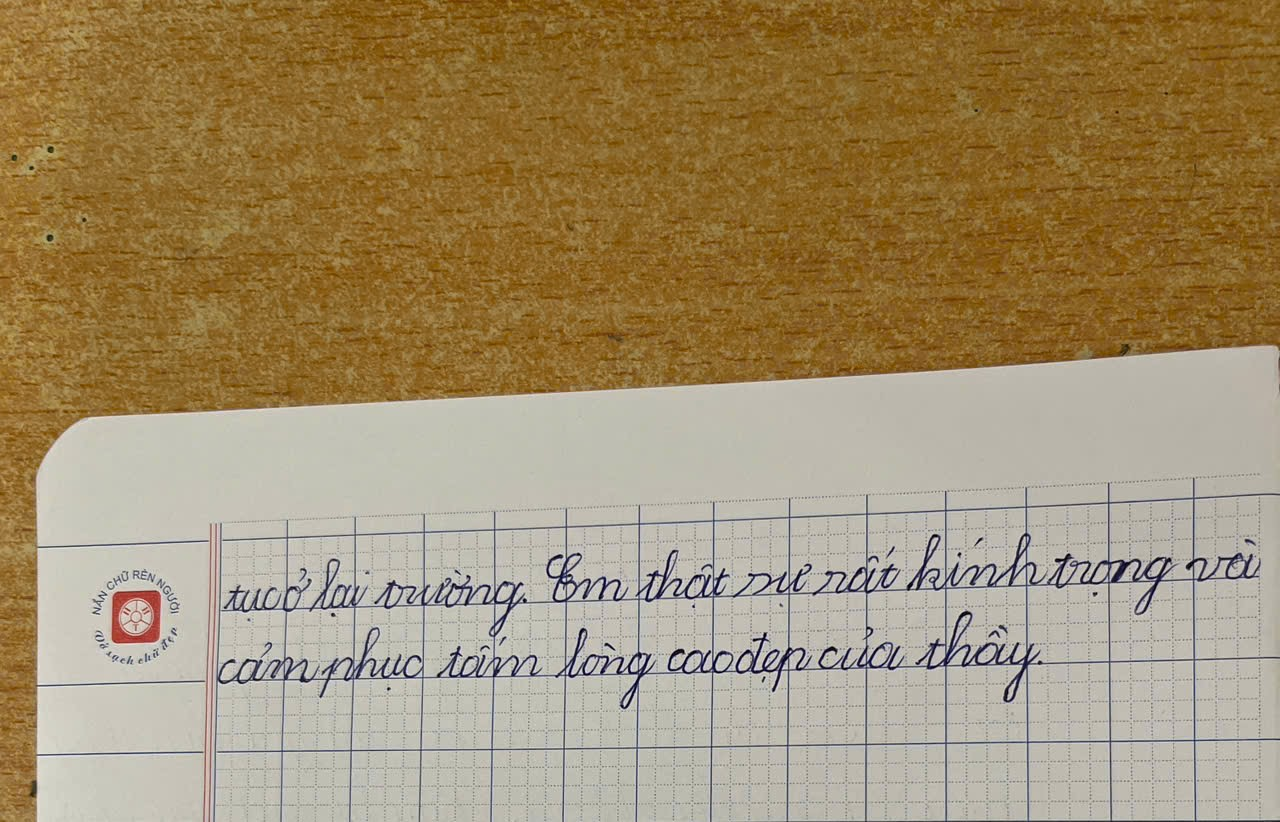 NẮN CHỮ RÈN NGƯỜI
Vở sạch chữ đẹp
tục ở lại trường. Em thật sự rất kính trọng và
cảm phục tấm lòng cao đẹp của thầy.